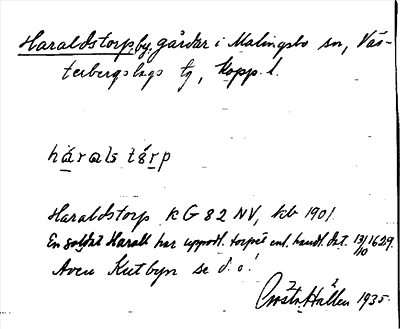 Haraldstorp, by, gårdar i Malingsbo sn, Väs-
terbergslags tg, Kopp. l.
hárals tårp
Haraldstorp KG 82 NV, kb 1901.
En soldat Harald har uppodl. torpet enl. handl. dat. 13/10 1629.
Även Kutbyn se d. o!
Gösta Hallen 1935.